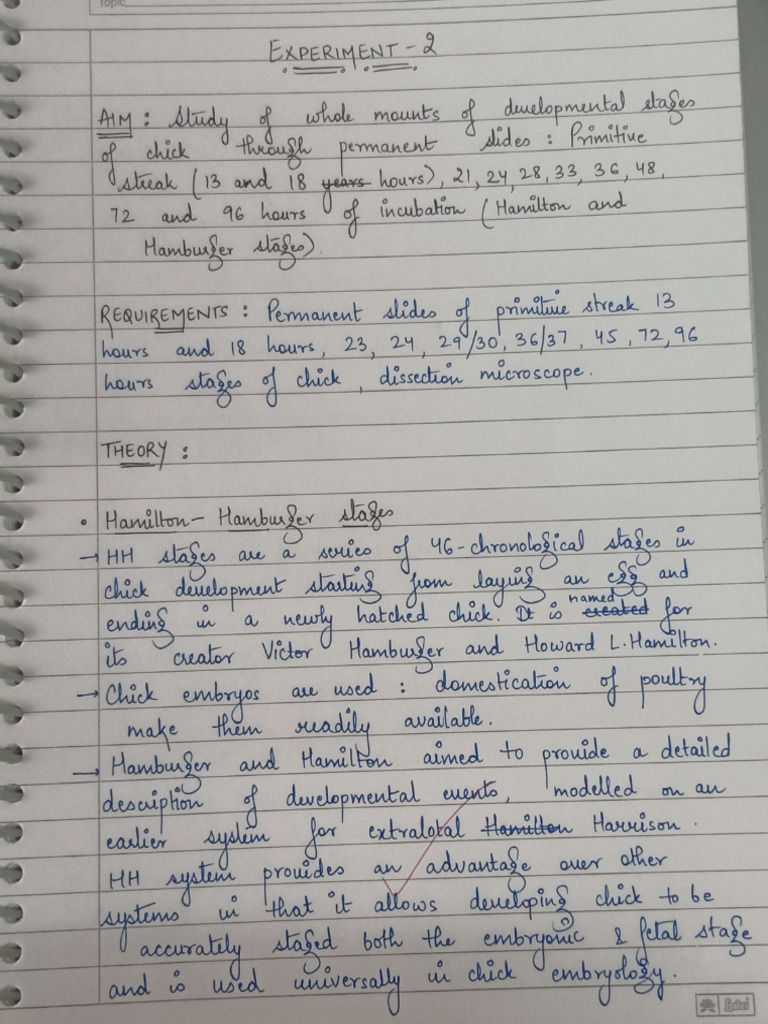 Topic
EXPERIMENT - 2
AIM : Study of whole mounts of developmental stages
of chick through permanent slides : Primitive
streak (13 and 18 years hours), 21, 24, 28, 33, 36, 48,
72 and 96 hours of incubation (Hamilton and
Hamburger stages).
REQUIREMENTS : Permanent slides of primitive streak 13
hours and 18 hours, 23, 24, 29/30, 36/37, 45, 72, 96
hours stages of chick, dissection microscope.
THEORY :
• Hamilton - Hamburger stages
→ HH stages are a series of 46-chronological stages in
chick development starting from laying an egg and
ending in a newly hatched chick. It is created named for
its creator Victor Hamburger and Howard L. Hamilton.
→ Chick embryos are used : domestication of poultry
make them readily available.
→ Hamburger and Hamilton aimed to provide a detailed
description of developmental events, modelled on an
earlier system for extralotal Hamilton Harrison.
HH system provides an advantage over other
systems in that it allows developing chick to be
accurately staged both the embryonic & fetal stage
and is used universally in chick embryology.